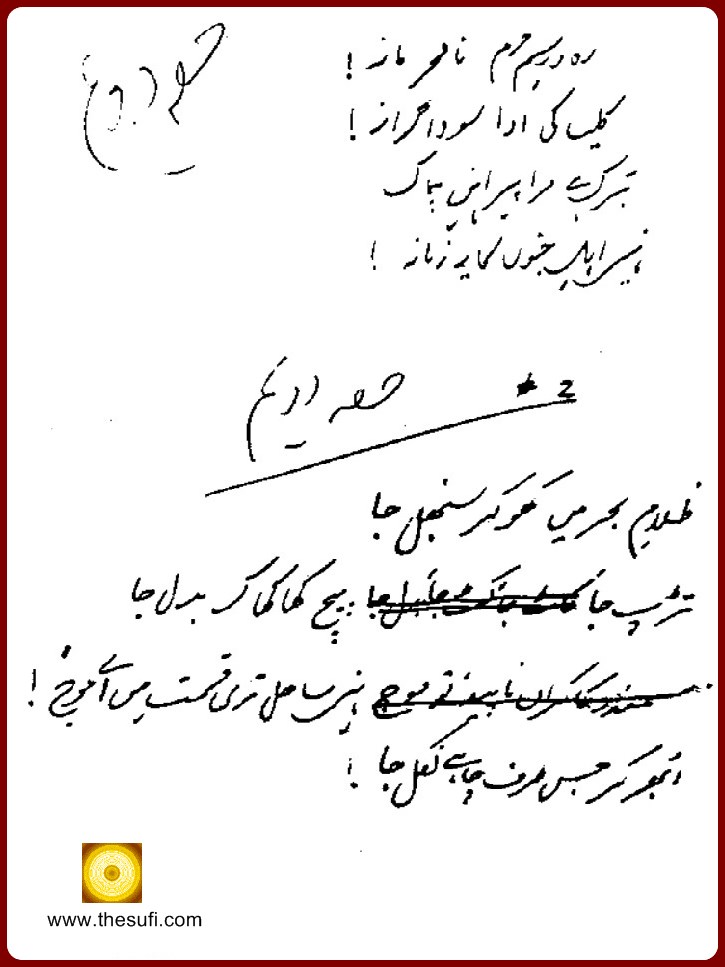 رہ و رسم حرم نا محرمانہ !
کلیسا کی ادا سوداگرانہ !
تبرک ہے مرا پیراہن چاک
نہیں اہل جنوں کا یہ زمانہ !
2
ظلام بحر میں کھو کر سنبھل جا
تڑپ جا پیچ کھا کھا کر بدل جا
نہیں ساحل تری قسمت میں اے موج !
ابھر کر جس طرف چاہے نکل جا !
www.thesufi.com